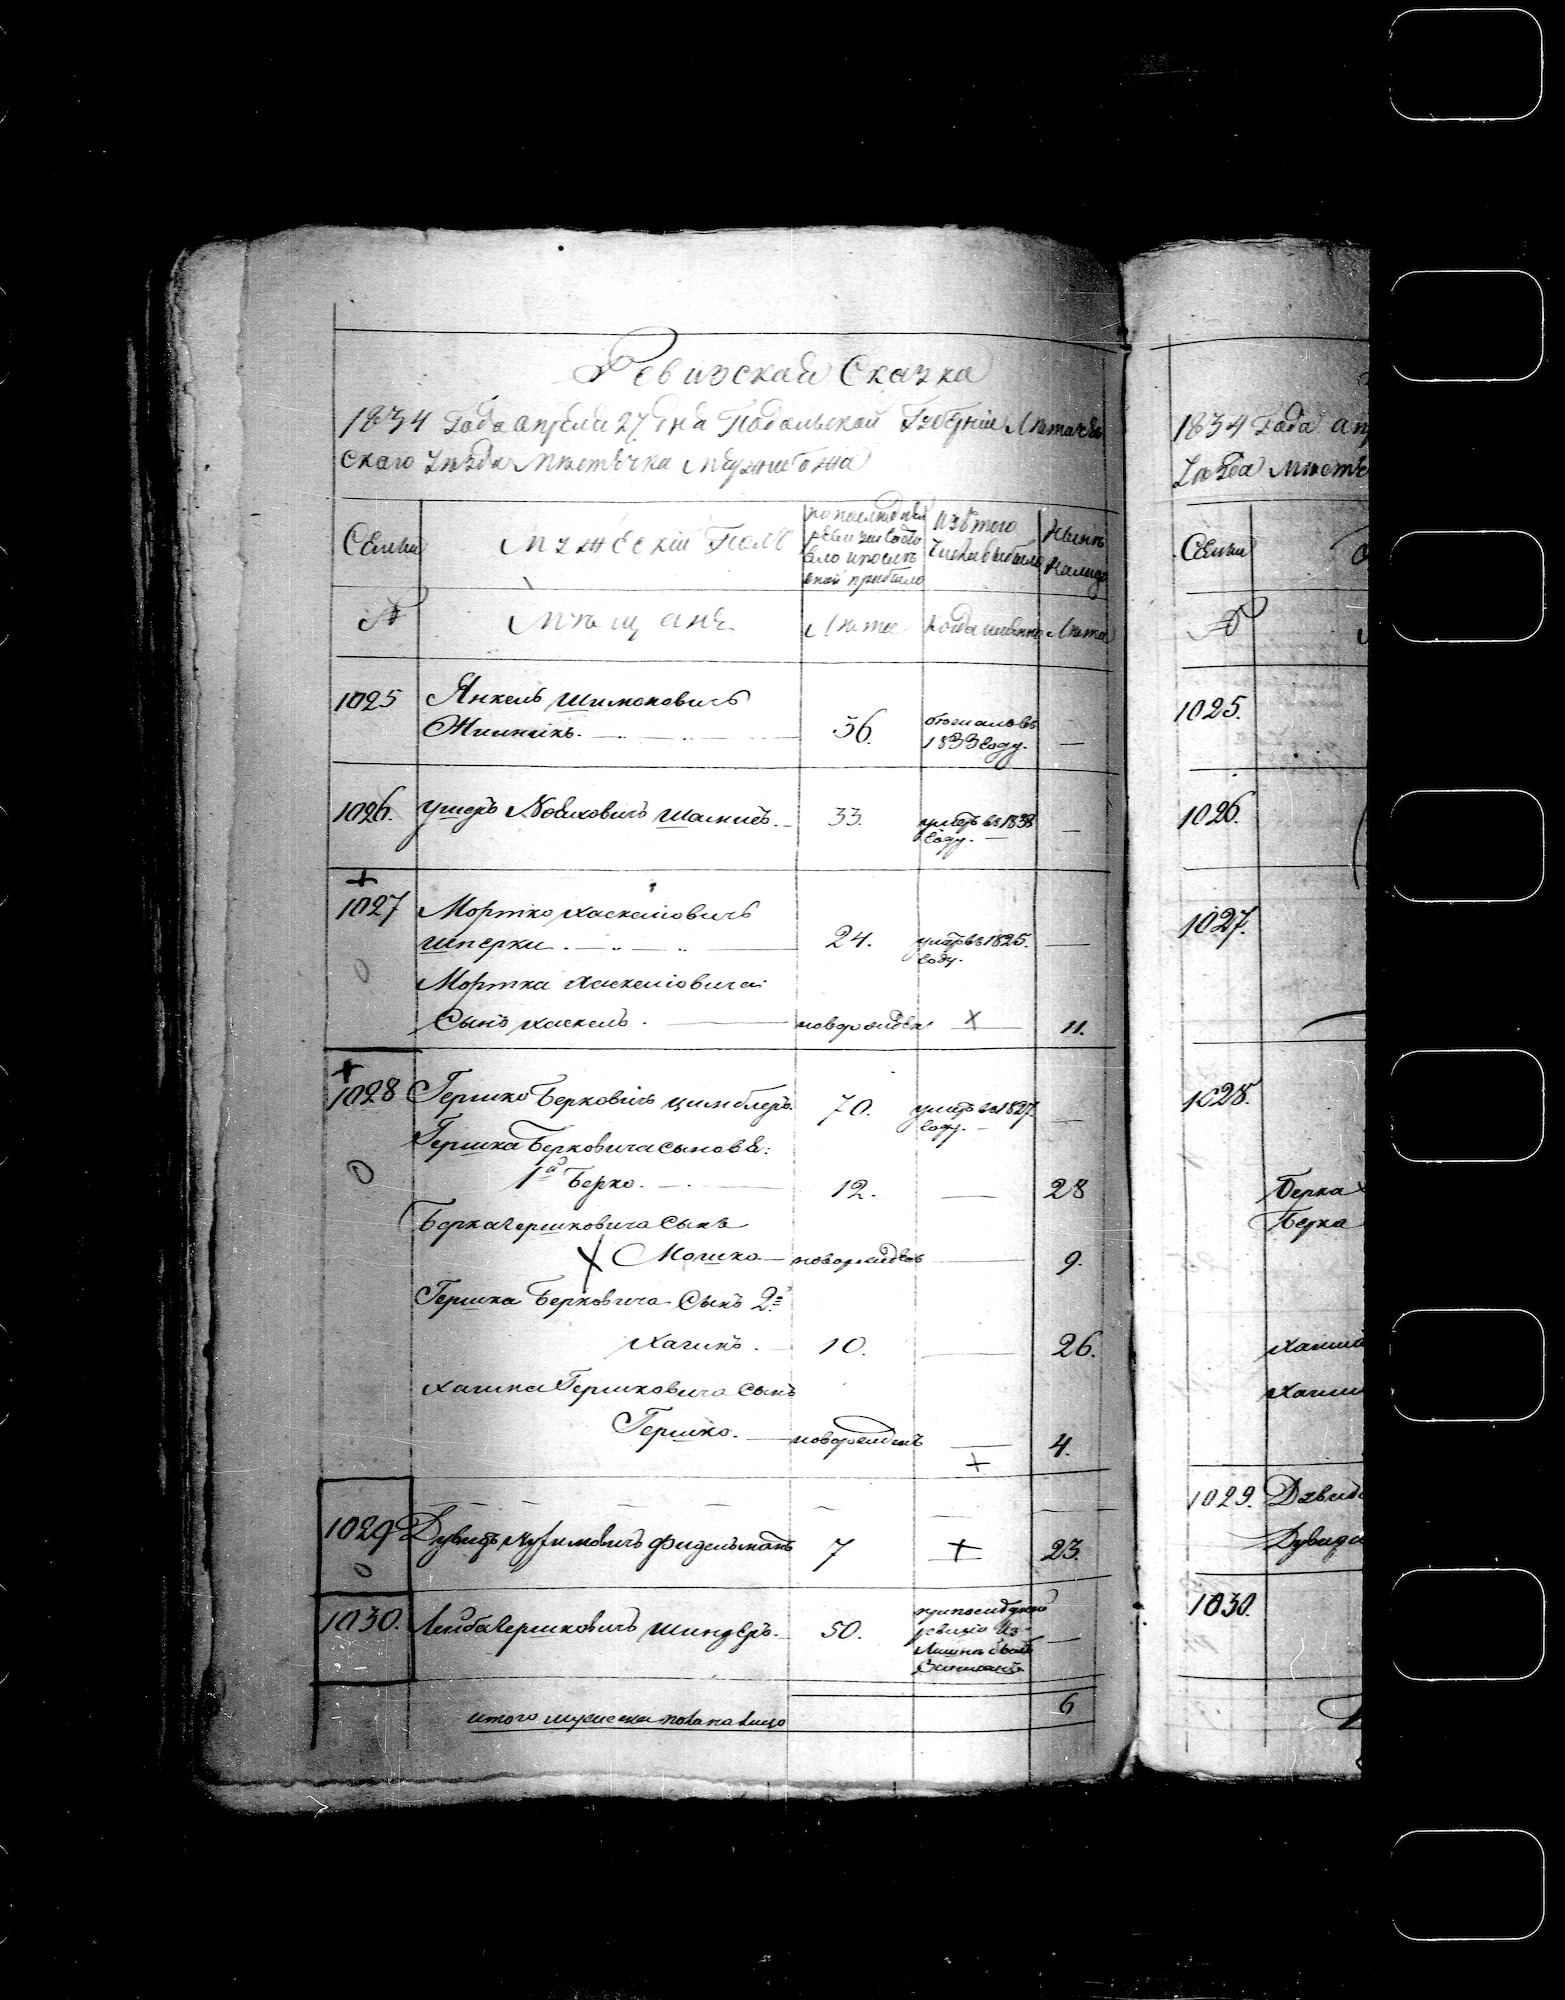 Ревизская Сказка
1834 Года апреля 27 дня Подольской Губерніи Летичев
скаго Уезда Местечка Меджибожа
Семьи
Мужескій Полъ
по последней
ревизіи состо
яло и после
оной прибыло
Изъ того
числа выбыло
Ныне
налицо
№
Мещане
Лета
Когда именно
Лета
1025
Янкель Шимоновичъ
36.
въ
1833 году.
1026.
Ушеръ
33.
умеръ въ 1833
году.
1027
Мортко Хаскелювичъ
Шперки.
24.
умеръ въ 1825.
году.
Мортка Хаскелювича
Сынъ Хаскель.
новорожденъ
11.
1028
Гершко Берковичъ Цимблеръ.
70.
умеръ въ 1827
году.
Гершка Берковича сыновья:
1й Берко.
12.
28
Берка Гершковича сынъ
Мошко
новорожденъ
9.
Гершка Берковича Сынъ 2й
Хаимъ.
10.
26.
Хаима Гершковича сынъ
Гершко.
новорожденъ
4.
1029
Дувидъ Фидельманъ
7
23.
1030.
Лейба Гершковичъ Шиндеръ.
50.
ревизіи из
итого мужеска пола на лицо
6
1834 Года ап
Уезда Месте
Семьи
№
1025.
1026.
1027.
1028.
Берка
Берка
Хаима
Хаим
1029.
Дувида
1030.